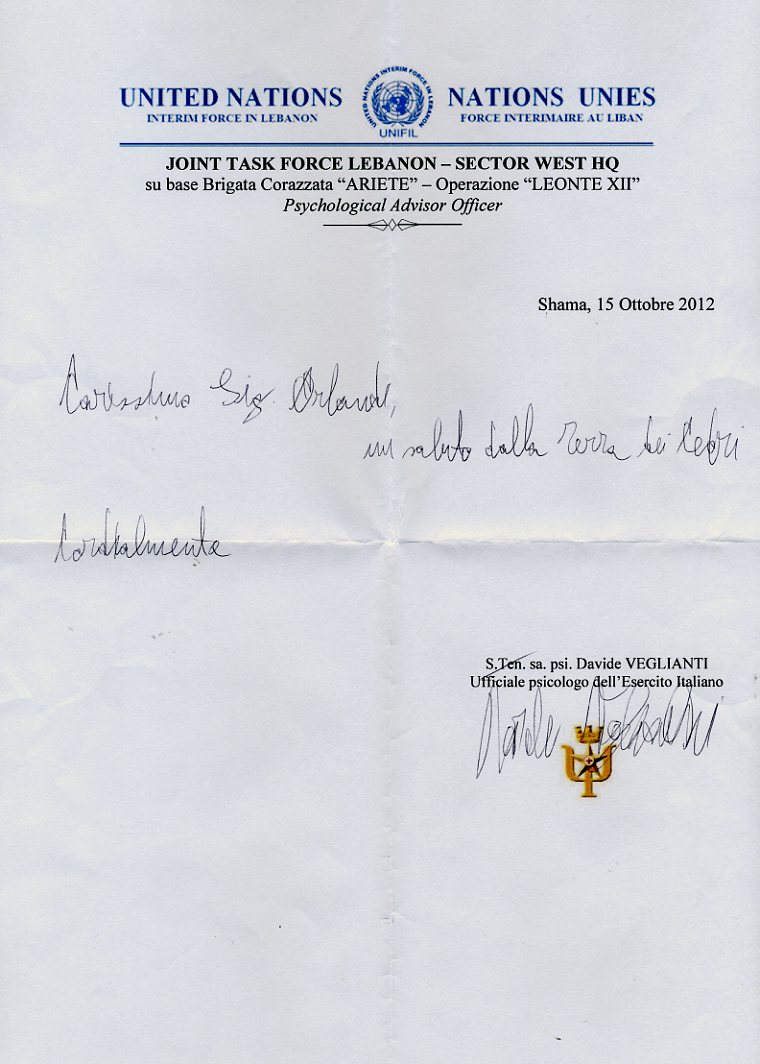 UNITED NATIONS
INTERIM FORCE IN LEBANON
UNITED NATIONS INTERIM FORCE IN LEBANON
UNIFIL
NATIONS UNIES
FORCE INTERIMAIRE AU LIBAN
JOINT TASK FORCE LEBANON – SECTOR WEST HQ
su base Brigata Corazzata “ARIETE” – Operazione “LEONTE XII”
Psychological Advisor Officer
Shama, 15 Ottobre 2012
Carissimo Sig. Orlandi,
un saluto dalla Terra dei Cedri
Cordialmente
S.Ten. sa. psi. Davide VEGLIANTI
Ufficiale psicologo dell’Esercito Italiano
Davide Veglianti